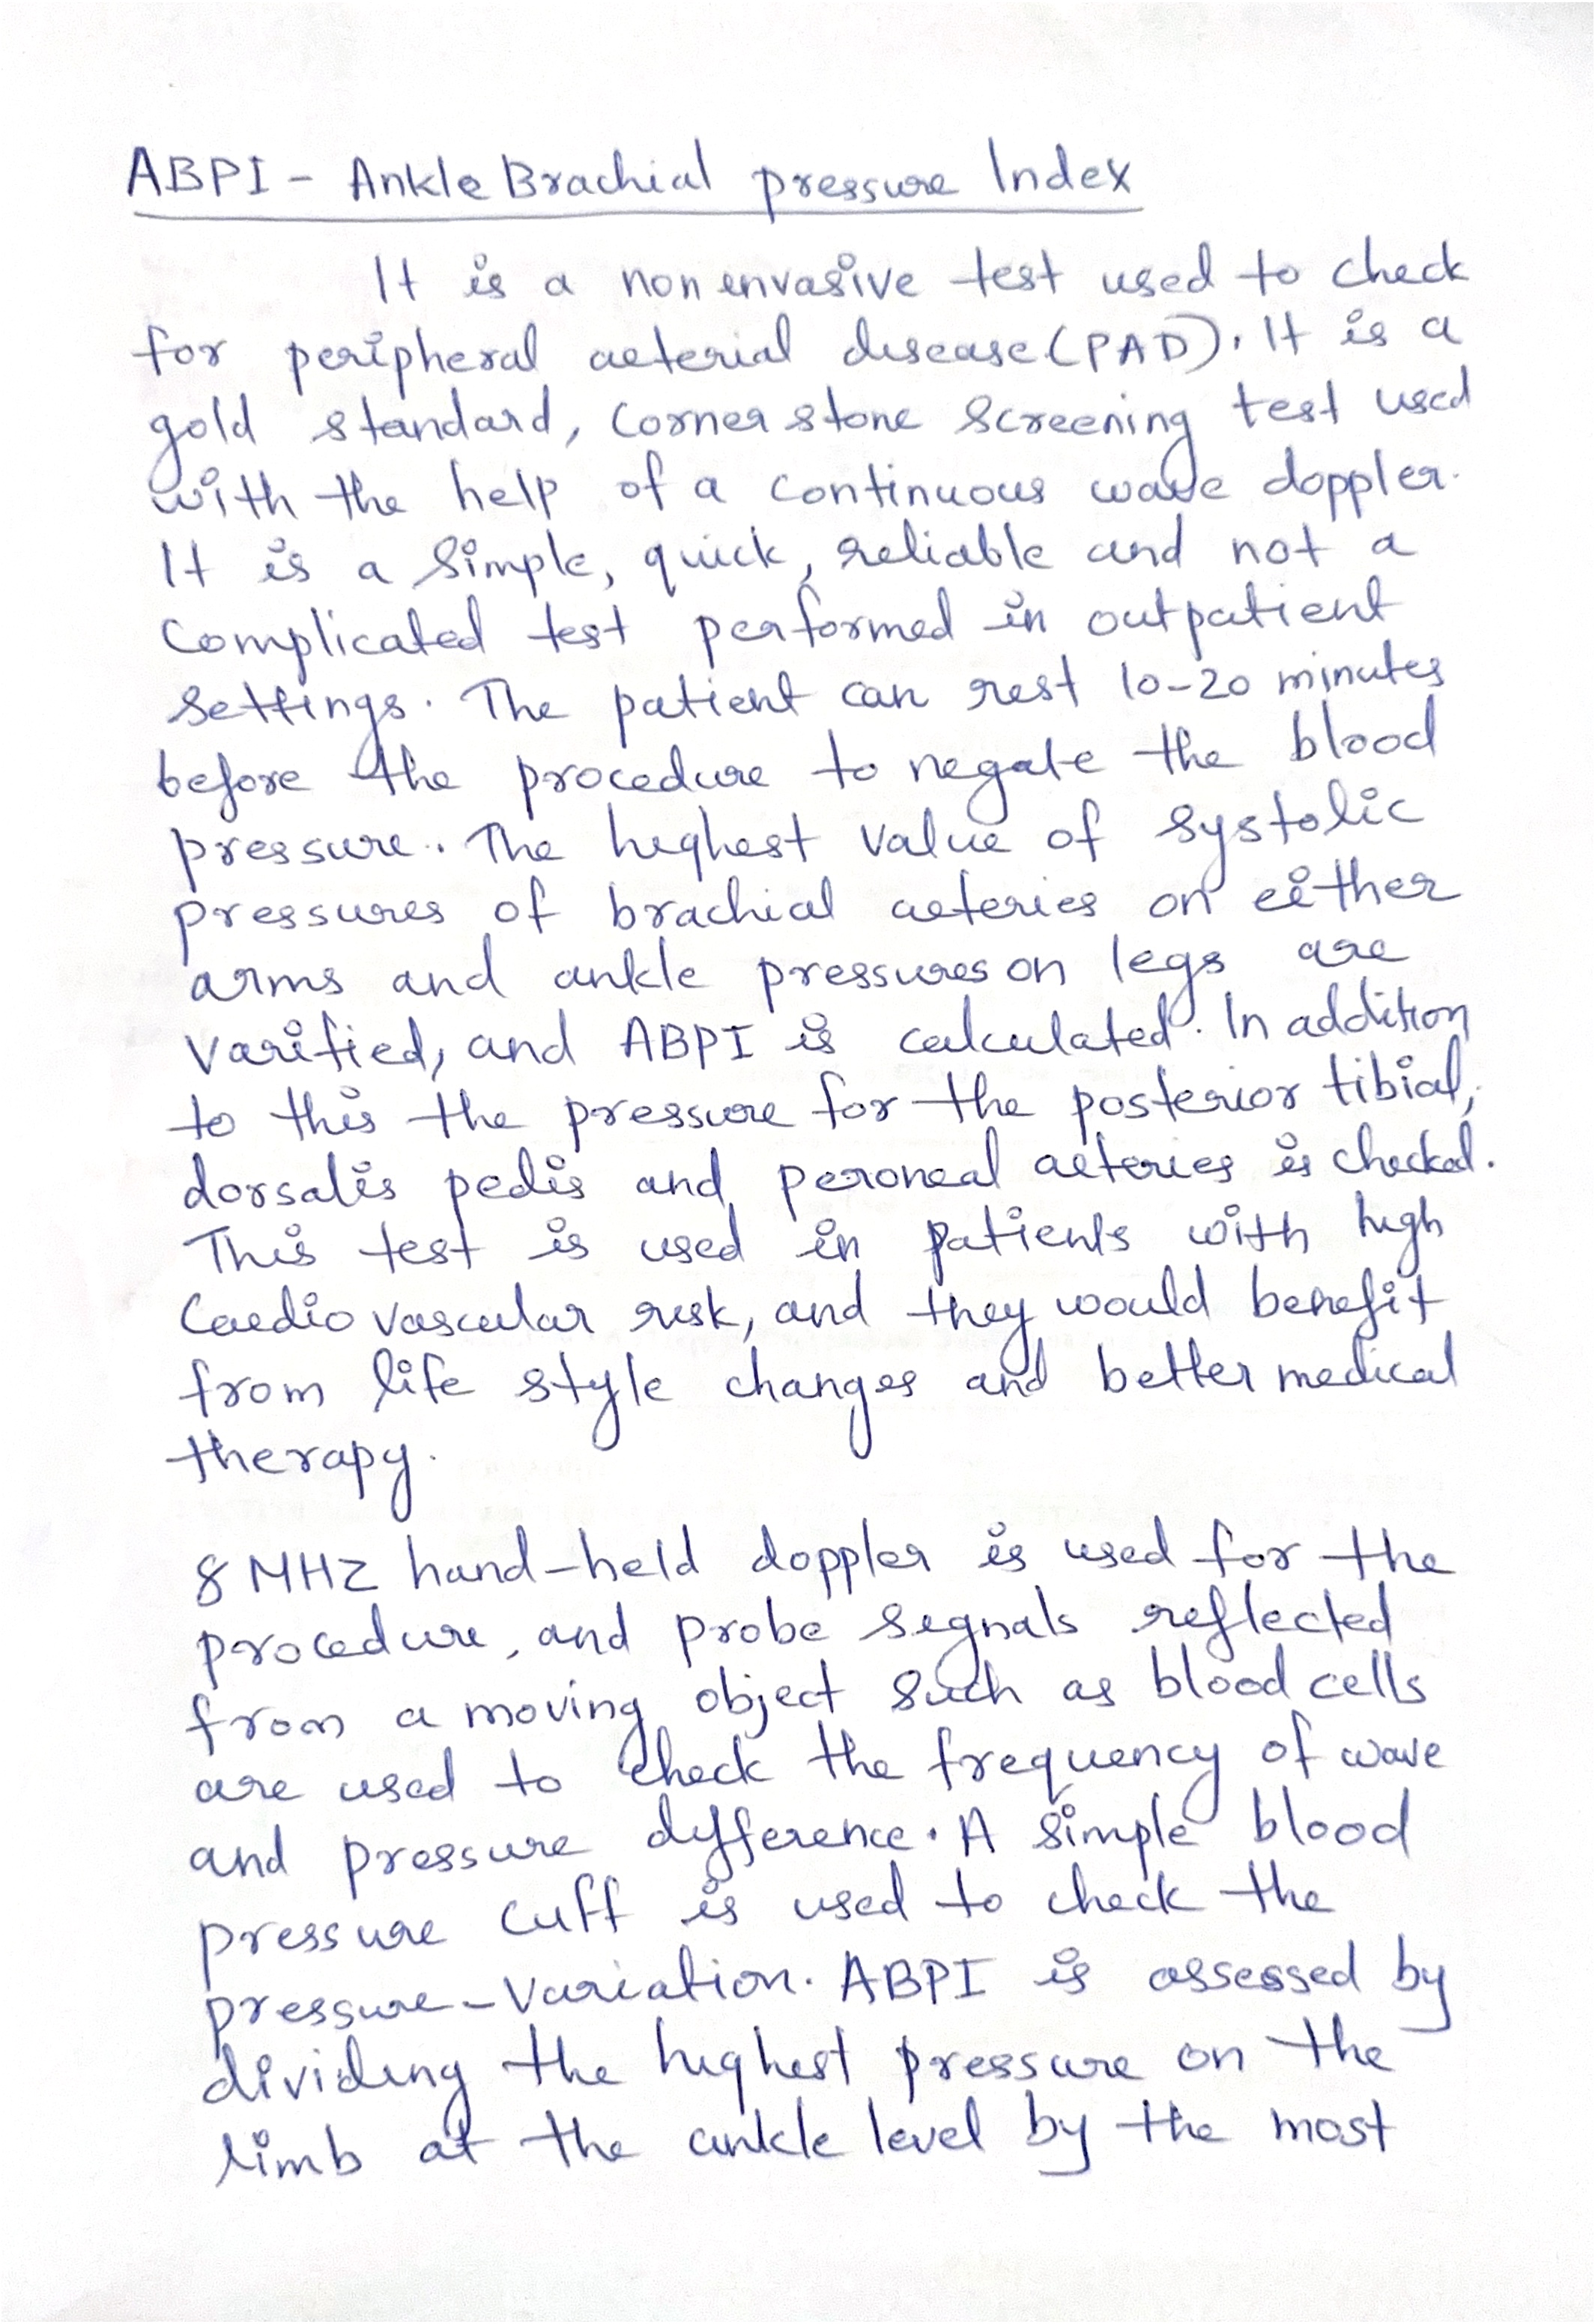 ABPI - Ankle Brachial pressure Index
It is a non envasive test used to check
for peripheral arterial disease (PAD). It is a
gold standard, corner stone screening test used
with the help of a continuous wave doppler.
It is a simple, quick, reliable and not a
complicated test performed in outpatient
settings. The patient can rest 10-20 minutes
before the procedure to negate the blood
pressure. The highest value of systolic
pressures of brachial arteries on either
arms and ankle pressures on legs are
varified, and ABPI is calculated. In addition
to this the pressure for the posterior tibial,
dorsalis pedis and peroneal arteries is checked.
This test is used in patients with high
Cardio vascular risk, and they would benefit
from life style changes and better medical
therapy.
8 MHZ hand-held doppler is used for the
procedure, and probe signals reflected
from a moving object such as blood cells
are used to check the frequency of wave
and pressure difference. A simple blood
pressure cuff is used to check the
pressure-variation. ABPI is assessed by
dividing the highest pressure on the
limb at the ankle level by the most